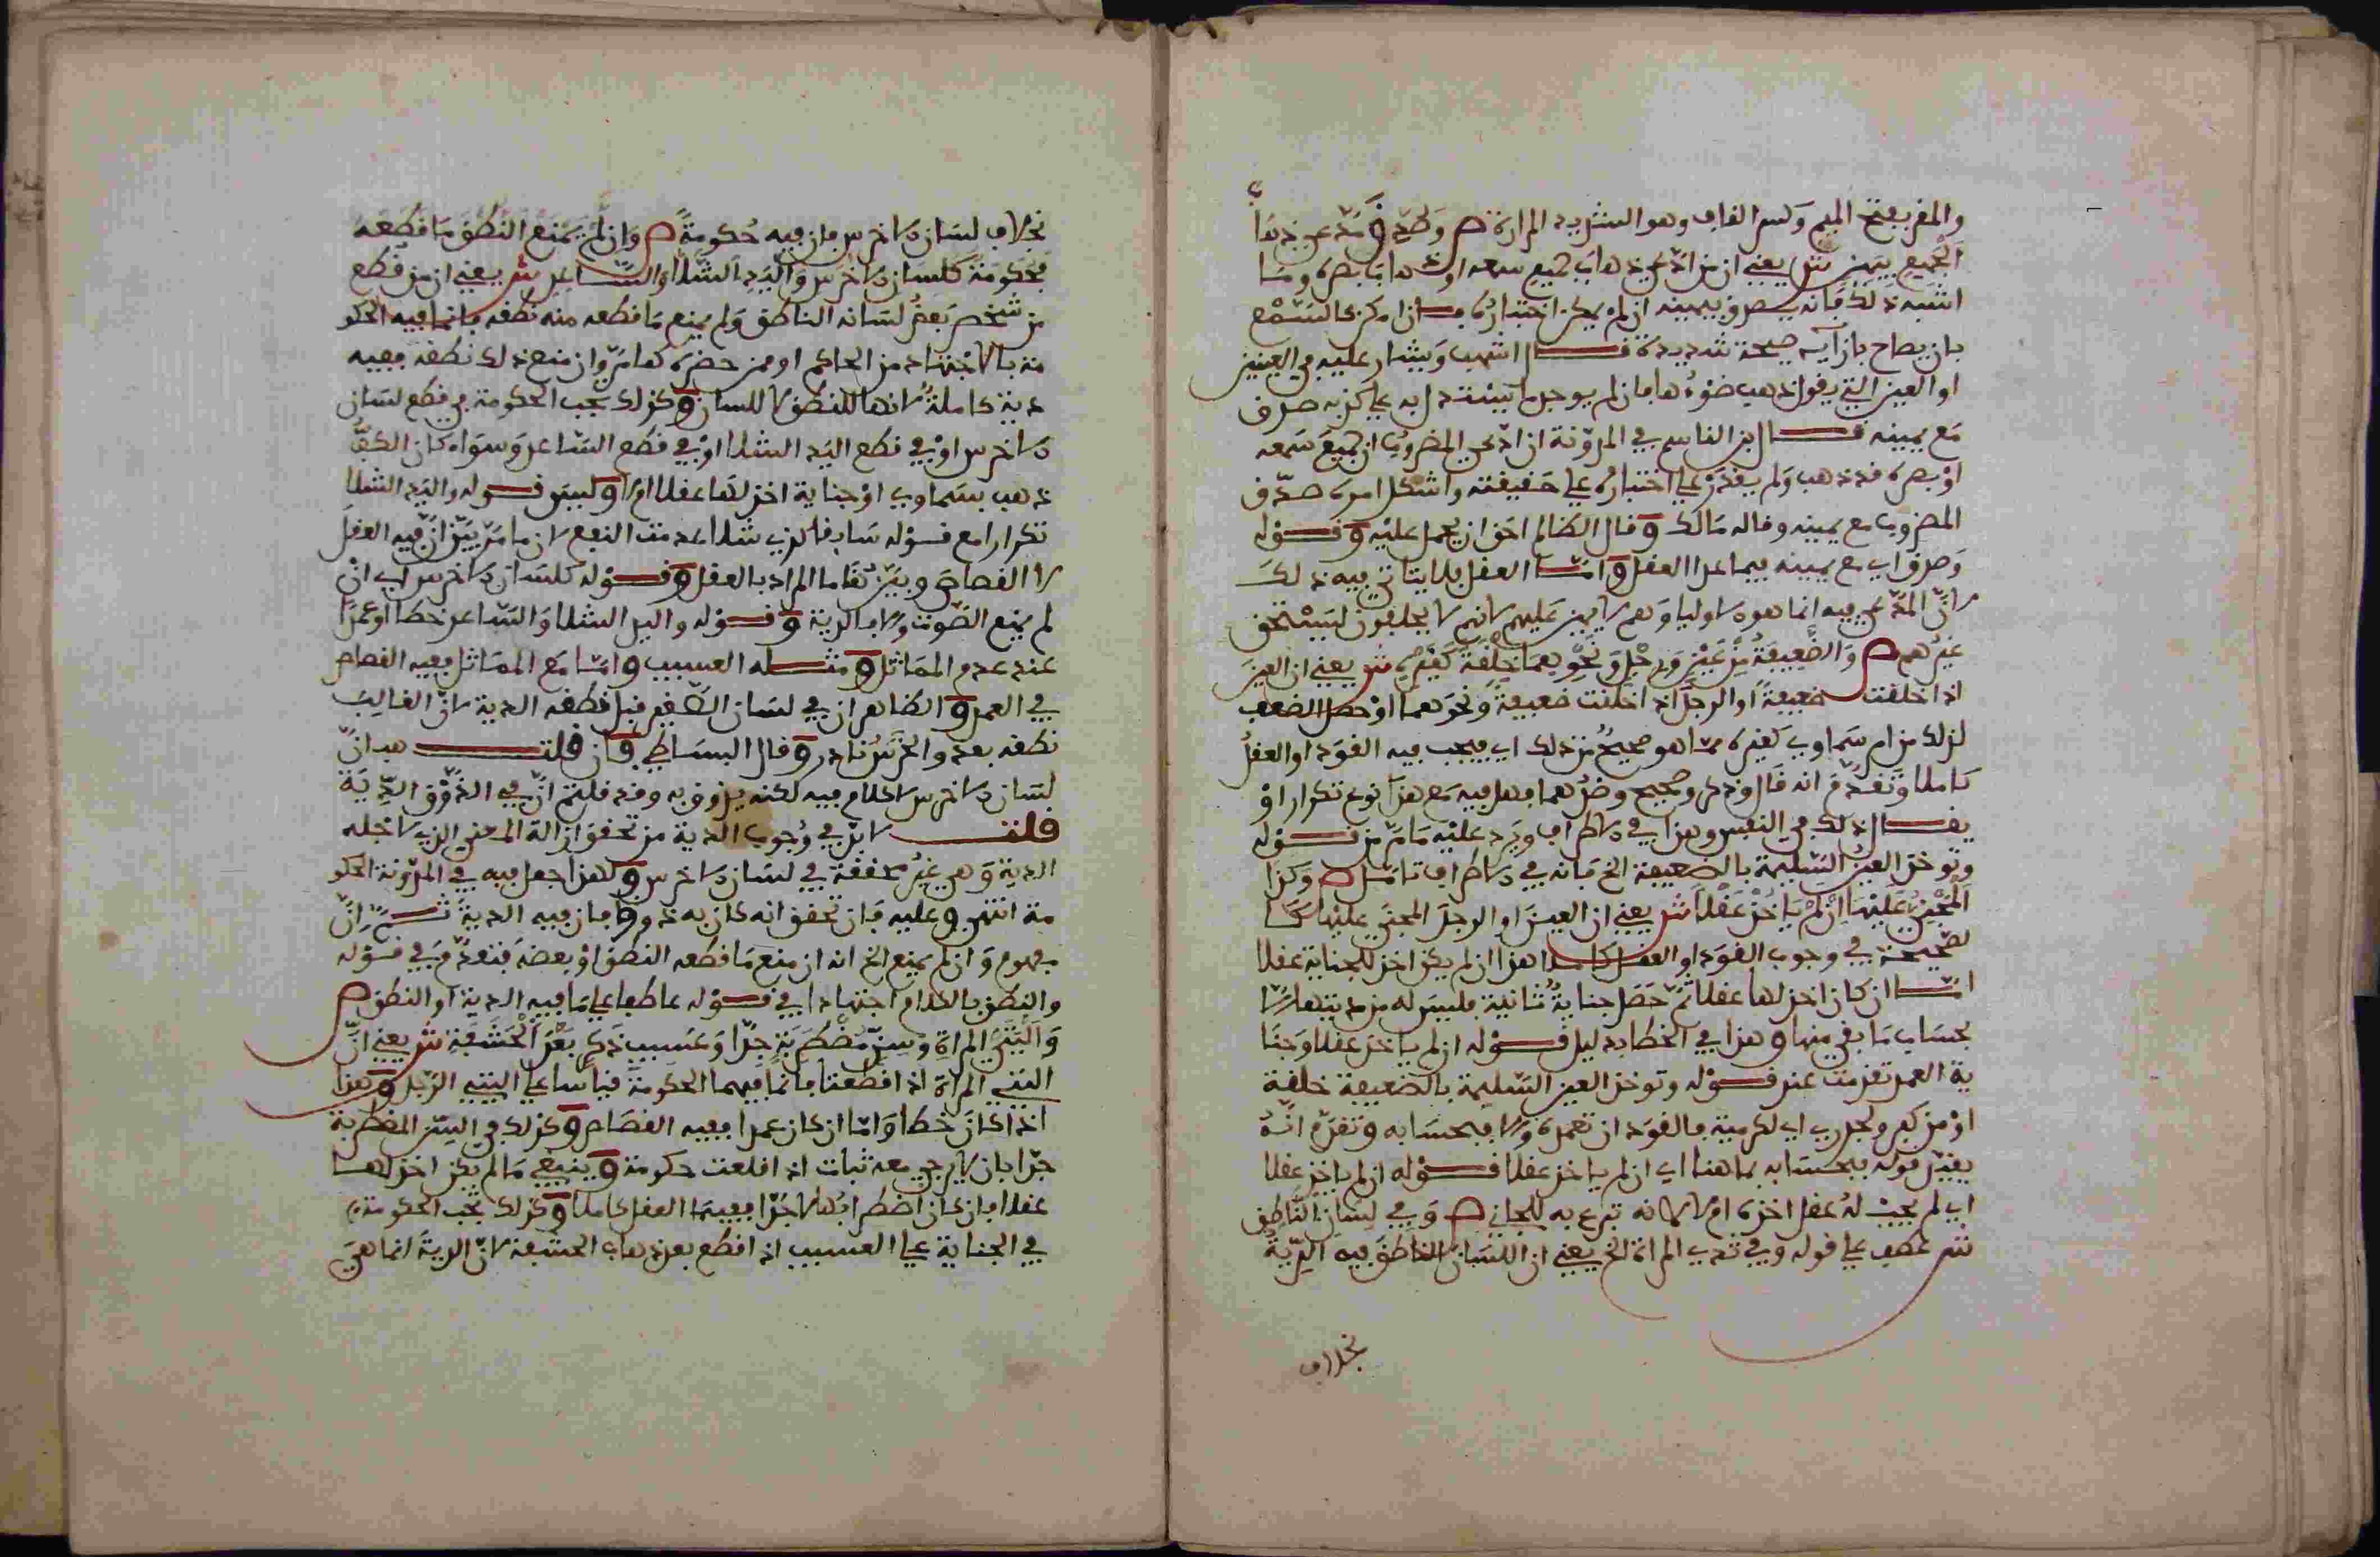 والمقر بفتح الميم وكسر القاف وهو الشديد المرارة ص وصدق مدع ذهاب
الجميع بيمين ش يعني ان من ادعى ذهاب جميع سمعه او ذهاب بصره وما
اشبه ذلك فانه يصدق بيمينه ان لم يمكن اختباره فان امكن كالسمع
بان يصاح بازايه صيحة شديدة قال اشهب ويشار عليه في العينين
او العين التي يقول ذهب ضوءها فان لم يوجد ما يستدل به على كذبه صدق
مع يمينه قال ابن القاسم في المدونة ان ادعى المضروب ان جميع سمعه
او بصره قد ذهب ولم يقدر على اختباره على حقيقته واشكل امره صدق
المضروب مع يمينه وقاله مالك وقال الظالم احق ان يحمل عليه وقوله
وصدق اي مع يمينه فيما عدا العقل واما العقل فلا يتاتى فيه ذلك
لان المدعي فيه انما هو الاوليا وهم لا يمين عليهم لانهم لا يحلفون ليستحق
غيرهم ص والضعيفة من عين ورجل ونحوهما خلقة كغيره ش يعني ان العين
اذا خلقت ضعيفة او الرجل اذا خلقت ضعيفة ونحوهما او حصل الضعف
لذلك من امر سماوي كغيره مما هو صحيح من ذلك اي فيجب فيه القود او العقل
كاملا وتقدم انه قال وذكر وصحيح وضدهما فهل فيه مع هذا نوع تكرار او
يقال ذلك في النفس وهذا في الاطراف ويرد عليه ما مر من قوله
وتوخذ العين السليمة بالضعيفة الخ فانه في الاطراف تامل ص وكذا
المجني عليها ان لم ياخذ عقلا ش يعني ان العين او الرجل المجني عليها كا
لصحيحة في وجوب القود او العقل كاملا هذا ان لم يكن اخذ للجناية عقلا
اما ان كان اخذ لها عقلا ثم حصل جناية ثانية فليس له من ديتها الا
بحساب ما بقي منها وهذا في الخطا بدليل قوله ان لم ياخذ عقلا وجنا
ية العمد تقدمت عند قوله وتوخذ العين السليمة بالضعيفة خلقة
او من كبر ولجدري اي لكرمية فالقود ان تعمده والا فبحسابه وتقدم انه
يقيد قوله فبحسابه بما هنا اي ان لم ياخذ عقلا قوله ان لم ياخذ عقلا
اي لم يجب له عقل اخذه ام لا لانه تبرع به للجاني ص وفي لسان الناطق
ش عطف على قوله وفي ثدي المراة الخ يعني ان اللسان الناطق فيه الدية
بخلاف
بخلاف لسان الاخرس فان فيه حكومة ص وان لم يمنع النطق ما قطعه
فحكومة كلسان الاخرس واليد الشلا والساعد ش يعني ان من قطع
من شخص بعض لسانه الناطق ولم يمنع ما قطعه منه نطقه فانما فيه الحكو
مة بالاجتهاد من الحاكم او ممن حضره كما مر وان منع ذلك نطقه ففيه
دية كاملة لانها للنطق لا للسان وكذلك تجب الحكومة في قطع لسان
الاخرس او في قطع اليد الشلا او في قطع الساعد وسواء كان الكف
ذهب بسماوي او جناية اخذ لها عقلا ام لا وليس قوله واليد الشلا
تكرارا مع قوله سابقا كذي شلا عدمت النفع لان ما مر بين ان فيه العقل
لا القصاص وبين هنا ما المراد بالعقل وقوله كلسان الاخرس اي ان
لم يمنع الصوت والا فالدية وقوله واليد الشلا والساعد خطا او عمدا
عند عدم المماثل ومثله العسيب واما مع المماثل ففيه القصاص
في العمد والظاهر ان في لسان الصغير قبل نطقه الدية لان الغالب
نطقه بعد والخرس نادر وقال البساطي فان قلت هب ان
لسان الاخرس لا كلام فيه لكنه يذوق به وقد قلتم ان في الذوق الدية
قلت لا بد في وجوب الدية من تحقق ازالة المعنى الذي لاجله
الدية وهي غير محققة في لسان الاخرس ولهذا جعل فيه في المدونة الحكو
مة انتهى وعليه فان تحقق انه كان به ذوق فان فيه الدية ثم ان
مفهوم وان لم يمنع الخ انه ان منع ما قطعه النطق او بعضه فتقدم في قوله
والنطق بالكلام اجتهادا في قوله عاطفا على ما فيه الدية او النطق ص
واليتي المراة وسن مضطربة جدا وعسيب ذكر بعد الحشفة ش يعني ان
اليتي المراة اذا قطعتا فانما فيهما الحكومة قياسا على اليتي الرجل وهذا
اذا كان خطا واما ان كان عمدا ففيه القصاص وكذلك في السن المضطربة
جدا بان لا يرجى معه ثبات اذا قلعت حكومة وينبغي ما لم يكن اخذ لها
عقلا فان كان اضطرابها لا جدا ففيها العقل كاملا وكذلك تجب الحكومة
في الجناية على العسيب اذا قطع بعد ذهاب الحشفة لان الدية انما هي